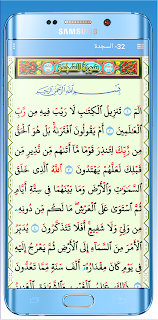 SAMSUNG
32- السجدة
سورة السجدة
بسم الله الرحمن الرحيم
الٓمٓ ۝ تَنزِيلُ ٱلْكِتَٰبِ لَا رَيْبَ فِيهِ مِن رَّبِّ
ٱلْعَٰلَمِينَ ۝ أَمْ يَقُولُونَ ٱفْتَرَىٰهُ بَلْ هُوَ ٱلْحَقُّ
مِن رَّبِّكَ لِتُنذِرَ قَوْمًا مَّآ أَتَىٰهُم مِّن نَّذِيرٍ مِّن
قَبْلِكَ لَعَلَّهُمْ يَهْتَدُونَ ۝ ٱللَّهُ ٱلَّذِى خَلَقَ
ٱلسَّمَٰوَٰتِ وَٱلْأَرْضَ وَمَا بَيْنَهُمَا فِى سِتَّةِ أَيَّامٍ
ثُمَّ ٱسْتَوَىٰ عَلَى ٱلْعَرْشِ مَا لَكُم مِّن دُونِهِۦ
مِن وَلِىٍّ وَلَا شَفِيعٍ أَفَلَا تَتَذَكَّرُونَ ۝ يُدَبِّرُ
ٱلْأَمْرَ مِنَ ٱلسَّمَآءِ إِلَى ٱلْأَرْضِ ثُمَّ يَعْرُجُ إِلَيْهِ
فِى يَوْمٍ كَانَ مِقْدَارُهُۥٓ أَلْفَ سَنَةٍ مِّمَّا تَعُدُّونَ